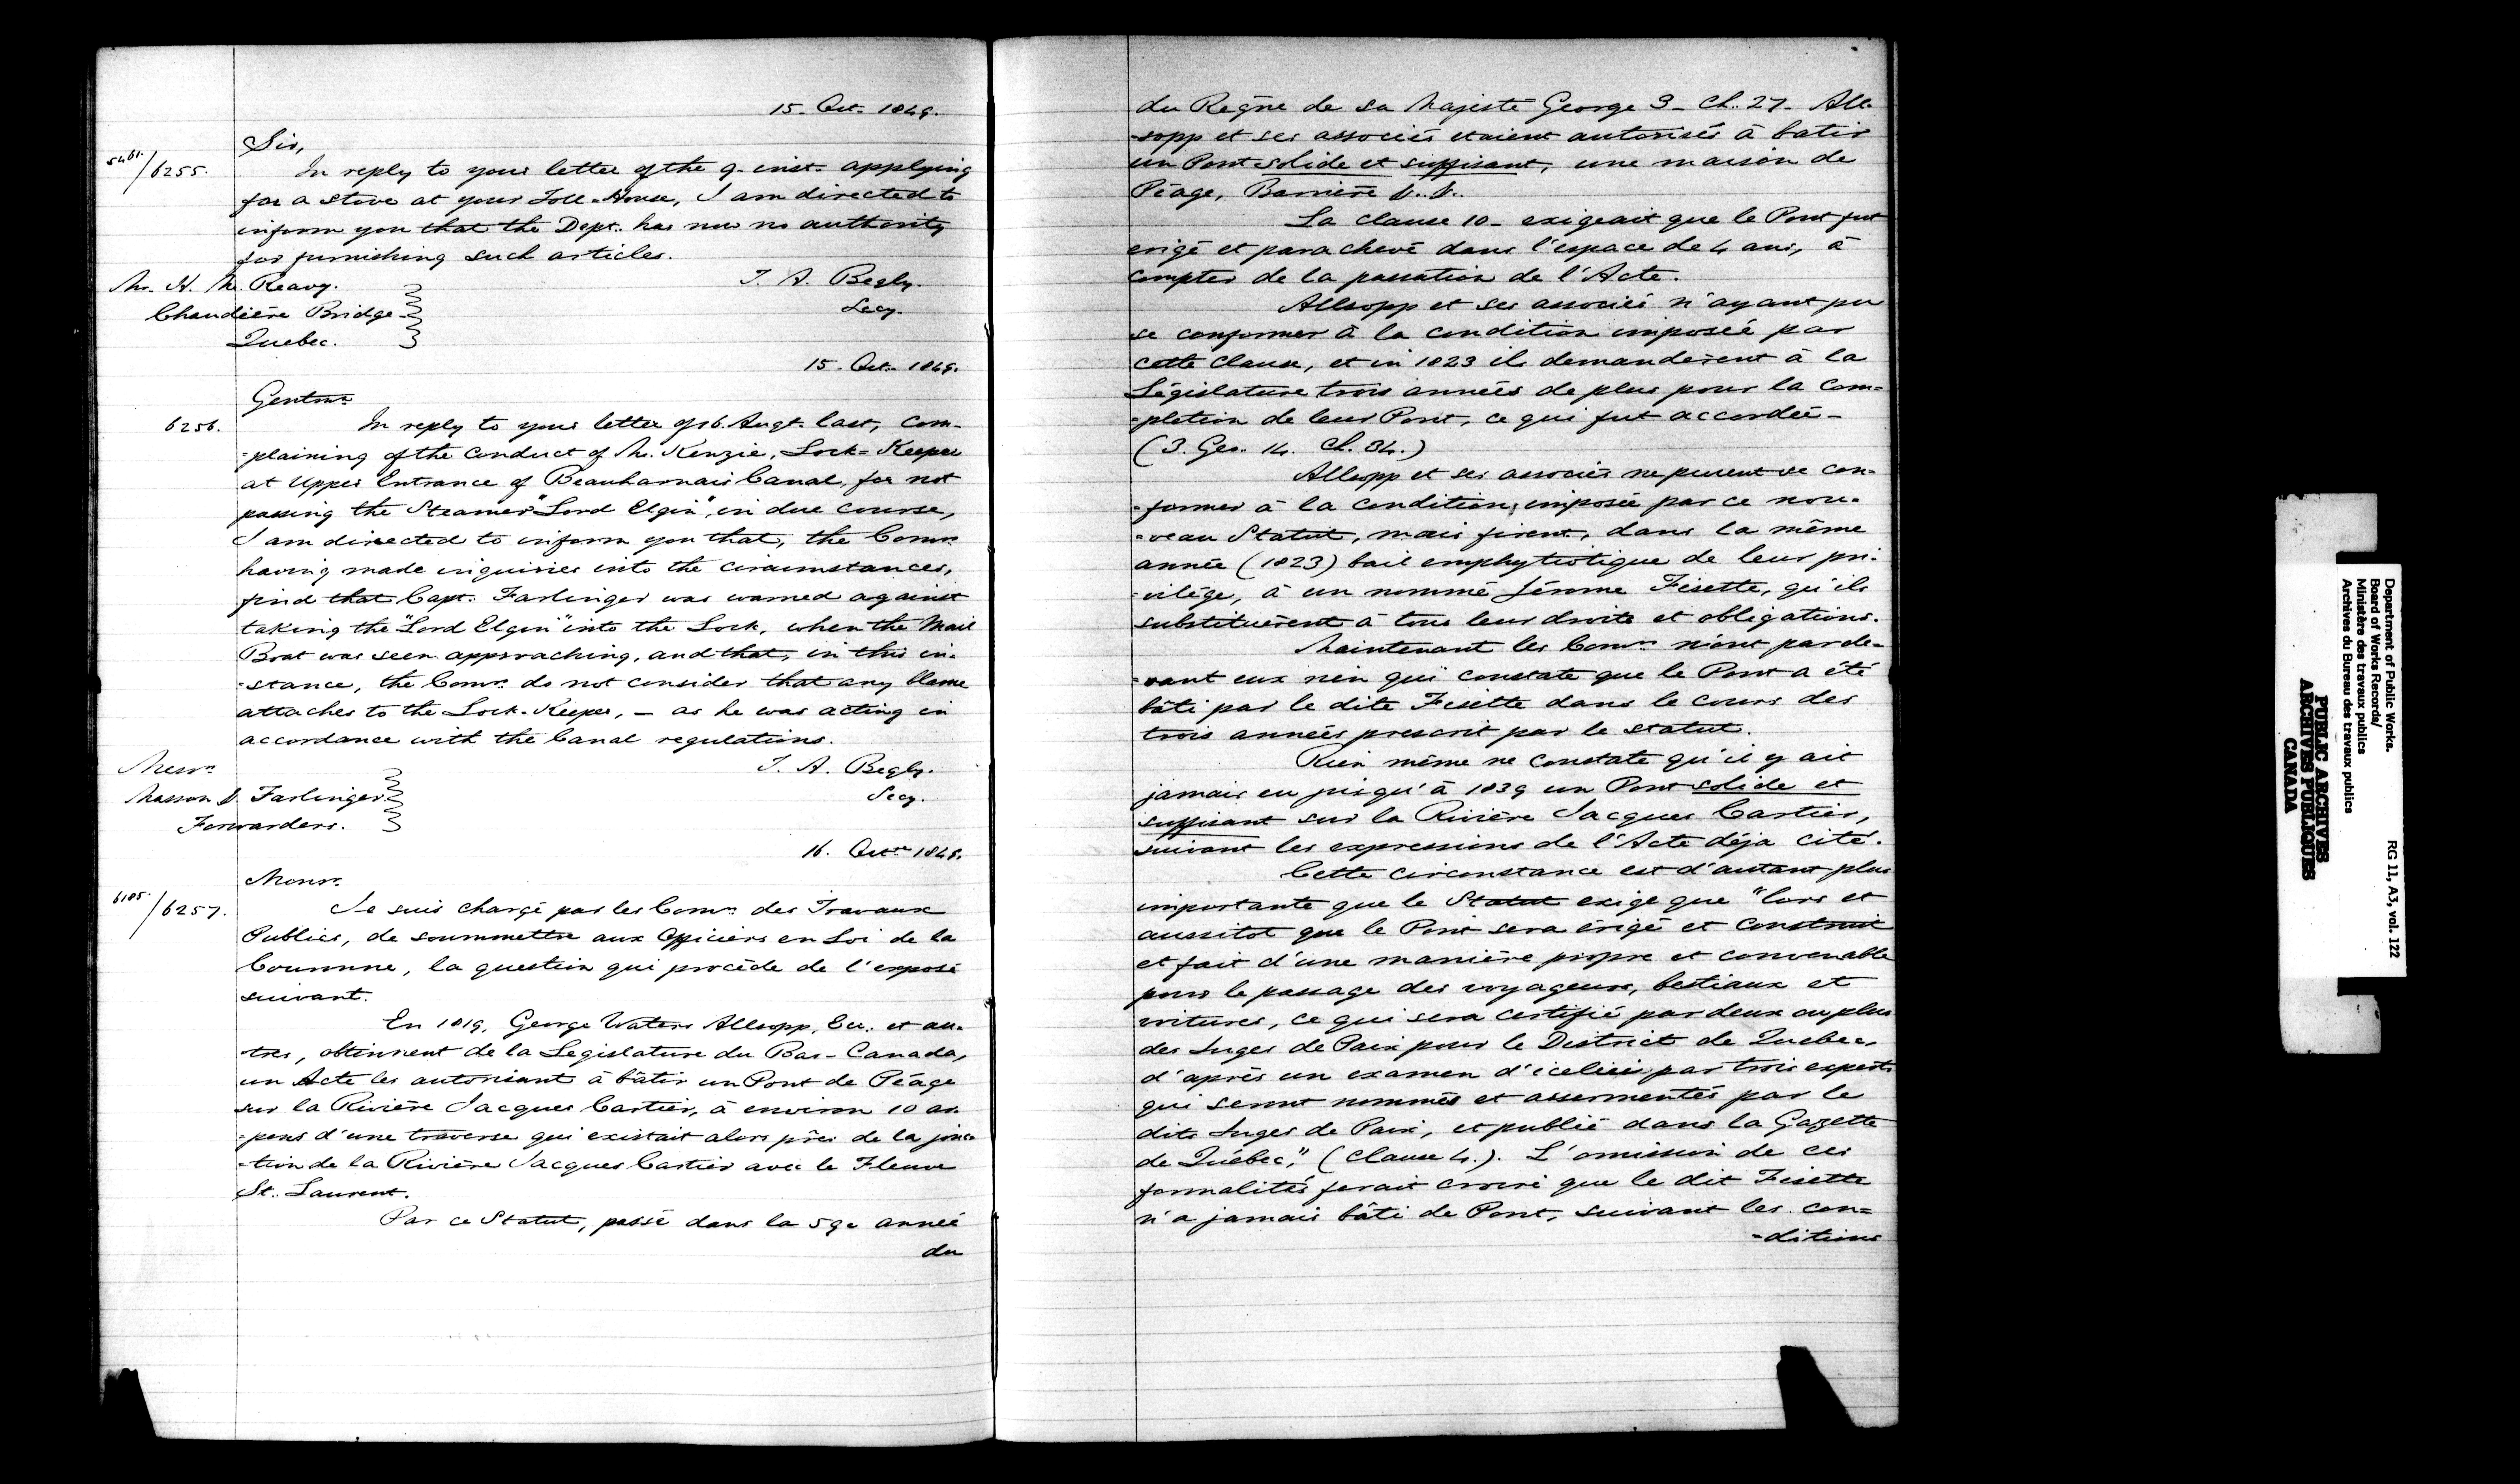 15. Oct. 1849.
Sir,
5461./6255.
In reply to your letter of the 9. inst. applying
for a stove at your Toll-House, I am directed to
inform you that the Dept. has now no authority
for furnishing such articles.
T. A. Begly.
Secy.
Mr. H. Mc. Reavy.
Chaudière Bridge
Quebec.
15. Oct. 1849.
Gentmn
6256.
In reply to your letter of 16. Augt. last, com-
-plaining of the conduct of Mc. Kenzie, Lock-Keeper
at Upper Entrance of Beauharnais Canal, for not
passing the Steamer "Lord Elgin", in due course,
I am directed to inform you that, the Comrs
having made inquiries into the circumstances,
find that Capt. Farlinger was warned against
taking the "Lord Elgin" into the Lock, when the Mail
Boat was seen approaching, and that, in this in-
-stance, the Comrs do not consider that any blame
attaches to the Lock-Keeper, – as he was acting in
accordance with the Canal regulations.
T. A. Begly.
Secy.
Messrs
Masson & Farlinger
Forwarders.
16. Octr 1849.
Monsr.
6185./6257.
Je suis chargé par les Comrs des Travaux
Publics, de soummettre aux Officiers en Loi de la
Couronne, la question qui procède de l'exposé
suivant.
En 1819, George Waters Allsopp, Ecr. et au-
-tres, obtinrent de la Legislature du Bas-Canada,
un Acte les autorisant à bâtir un Pont de Péage
sur la Rivière Jacques Cartier, à environ 10 ar-
-pens d'une traverse qui existait alors près de la jonc-
-tion de la Rivière Jacques Cartier avec le Fleuve
St. Laurent.
Par ce Statut, passé dans la 59e année
du
du Règne de sa Majesté George 3 - Ch. 27 - All-
-sopp et ses associés etaient autorisés à batir
un Pont solide et suffisant, une maison de
Péage, Barrière &. &.
La clause 10 - exigeait que le Pont fut
erigé et parachevé dans l'espace de 4 ans, à
compter de la passation de l'Acte.
Allsopp et ses associés n'ayant pu
se conformer à la condition imposée par
cette clause, et en 1823 ils demandèrent à la
Législature trois années de plus pour la com-
-pletion de leur Pont, ce qui fut accordée -
(3. Geo. 14. Ch. 34.)
Allsopp et ses associés ne purent se con-
-former à la condition, imposée par ce nou-
-veau Statut, mais firent, dans la même
année (1823) bail emphytéotique de leur pri-
-vilége, à un nommé Jérome Fisette, qu'ils
substituèrent à tous leur droits et obligations.
Maintenant les Comrs n'ont par de-
-vant eux rien qui constate que le Pont a été
bâti par le dite Fisette dans le cours des
trois années prescrit par le statut.
Rien même ne constate qu'il y ait
jamais eu jusqu'à 1839 un Pont solide et
suffisant sur la Rivière Jacques Cartier,
suivant les expressions de l'Acte déja cité.
Cette circonstance est d'autant plus
importante que le Statut exige que "lors et
aussitot que le Pont sera érigé et construit
et fait d'une manière propre et convenable
pour le passage des voyageurs, bestiaux et
voitures, ce qui sera certifié par deux ou plus
des Juges de Paix pour le District de Quebec,
d'après un examen d'icelui par trois experts
qui seront nommés et assermentés par le
dits Juges de Paix, et publié dans la Gazette
de Québec," (Clause 4.). L'omission de ces
formalités ferait croire que le dit Fisette
n'a jamais bâti de Pont, suivant les con=
-ditions
Department of Public Works.
Board of Works Records/
Ministère des travaux publics
Archives du Bureau des travaux publics
RG 11, A3, vol. 122
PUBLIC ARCHIVES
ARCHIVES PUBLIQUES
CANADA